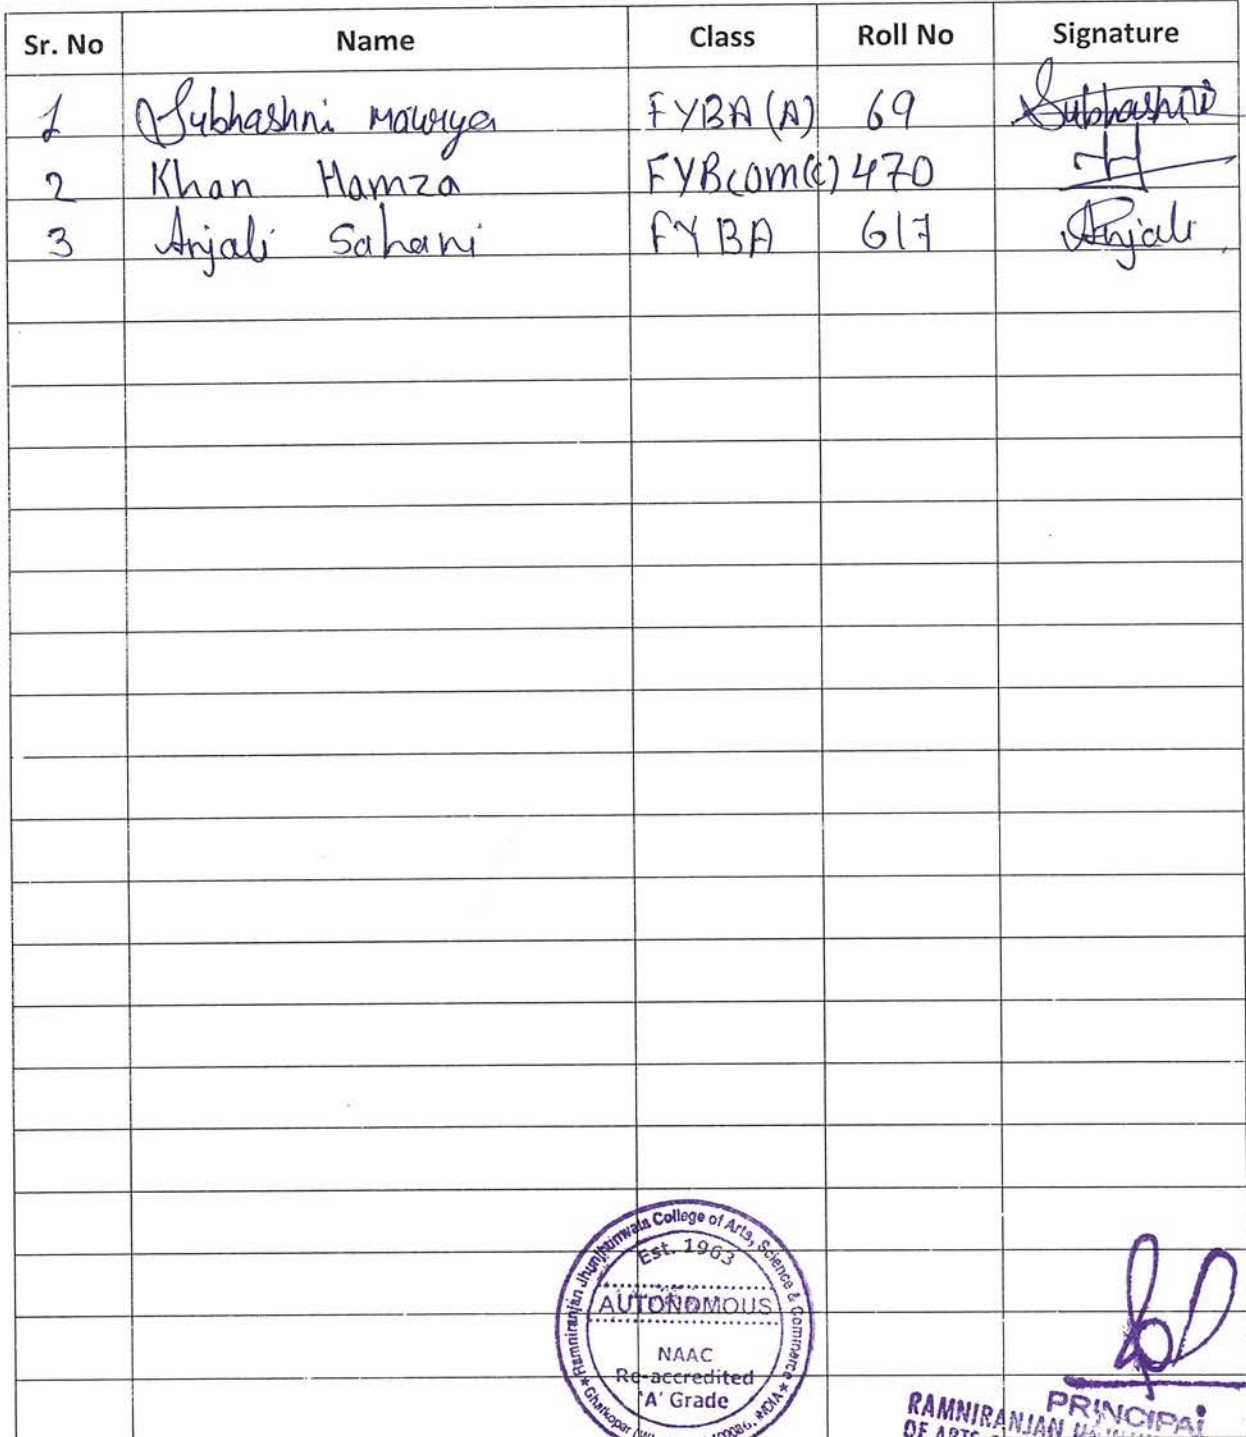 Sr. No Name Class Roll No Signature
1 Subhashni mawrya FYBA (A) 69 Subhashni
2 Khan Hamza FYBcom(c) 470
3 Anjali Sahani FYBA 617 Anjali
Ramniranjan Jhunjhunwala College of Arts, Science & Commerce
Est. 1963
AUTONOMOUS
NAAC
Re-accredited
'A' Grade
Ghatkopar INDIA
PRINCIPAL
RAMNIRANJAN
OF ARTS